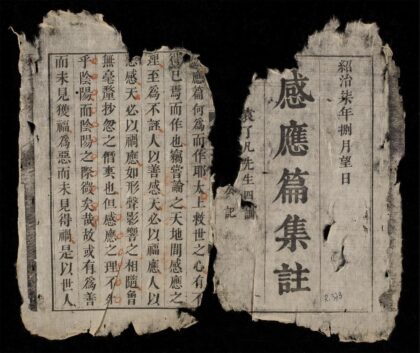 紹治柒年捌月望日
感應篇集註
袁了凡先生四訓
公記
應篇何為而作耶太上救世之心有不
已焉而作也竊嘗論之天地間感應之
理至為不誣人以善感天必以福應人以
惡感天必以禍應如形聲影響之相隨曾
無毫釐抄忽之僭爽也但感應之理不外
乎陰陽而陰陽之際微矣哉故或有為善
而未見獲福為惡而未見得禍是以世人